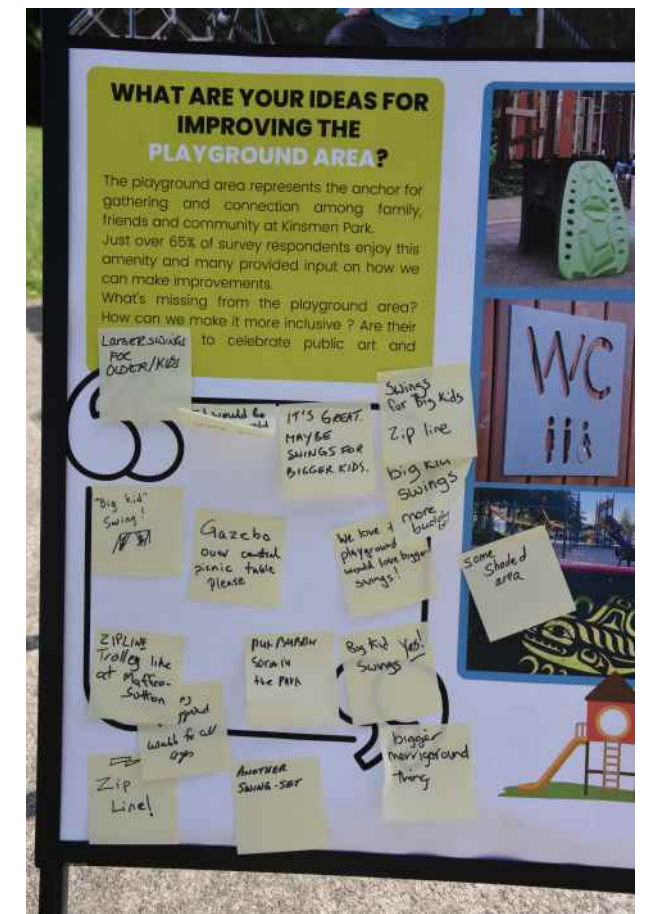 WHAT ARE YOUR IDEAS FOR
IMPROVING THE
PLAYGROUND AREA?
The playground area represents the anchor for
gathering and connection among family,
friends and community at Kinsmen Park.
Just over 65% of survey respondents enjoy this
amenity and many provided input on how we
can make improvements.
What's missing from the playground area?
How can we make it more inclusive ? Are their
to celebrate public art and
LARGER SWINGS
FOR
OLDER/KIDS
would be
IT'S GREAT.
MAYBE
SWINGS FOR
BIGGER KIDS.
Swings
for Big Kids
Zip line
big kid
swings
more
"Big kid"
Swing!
Gazebo
over central
picnic table
Please
We love
playground
would love bigger
swings!
some
Shaded
area
ZIPLINE
Trolley like
at Maffeo-
Sutton
in
the PARK
Big Kid Yes!
Swings
all
ages
Zip
Line!
ANOTHER
SWING-SET
bigger
merrigoround
thing
WC